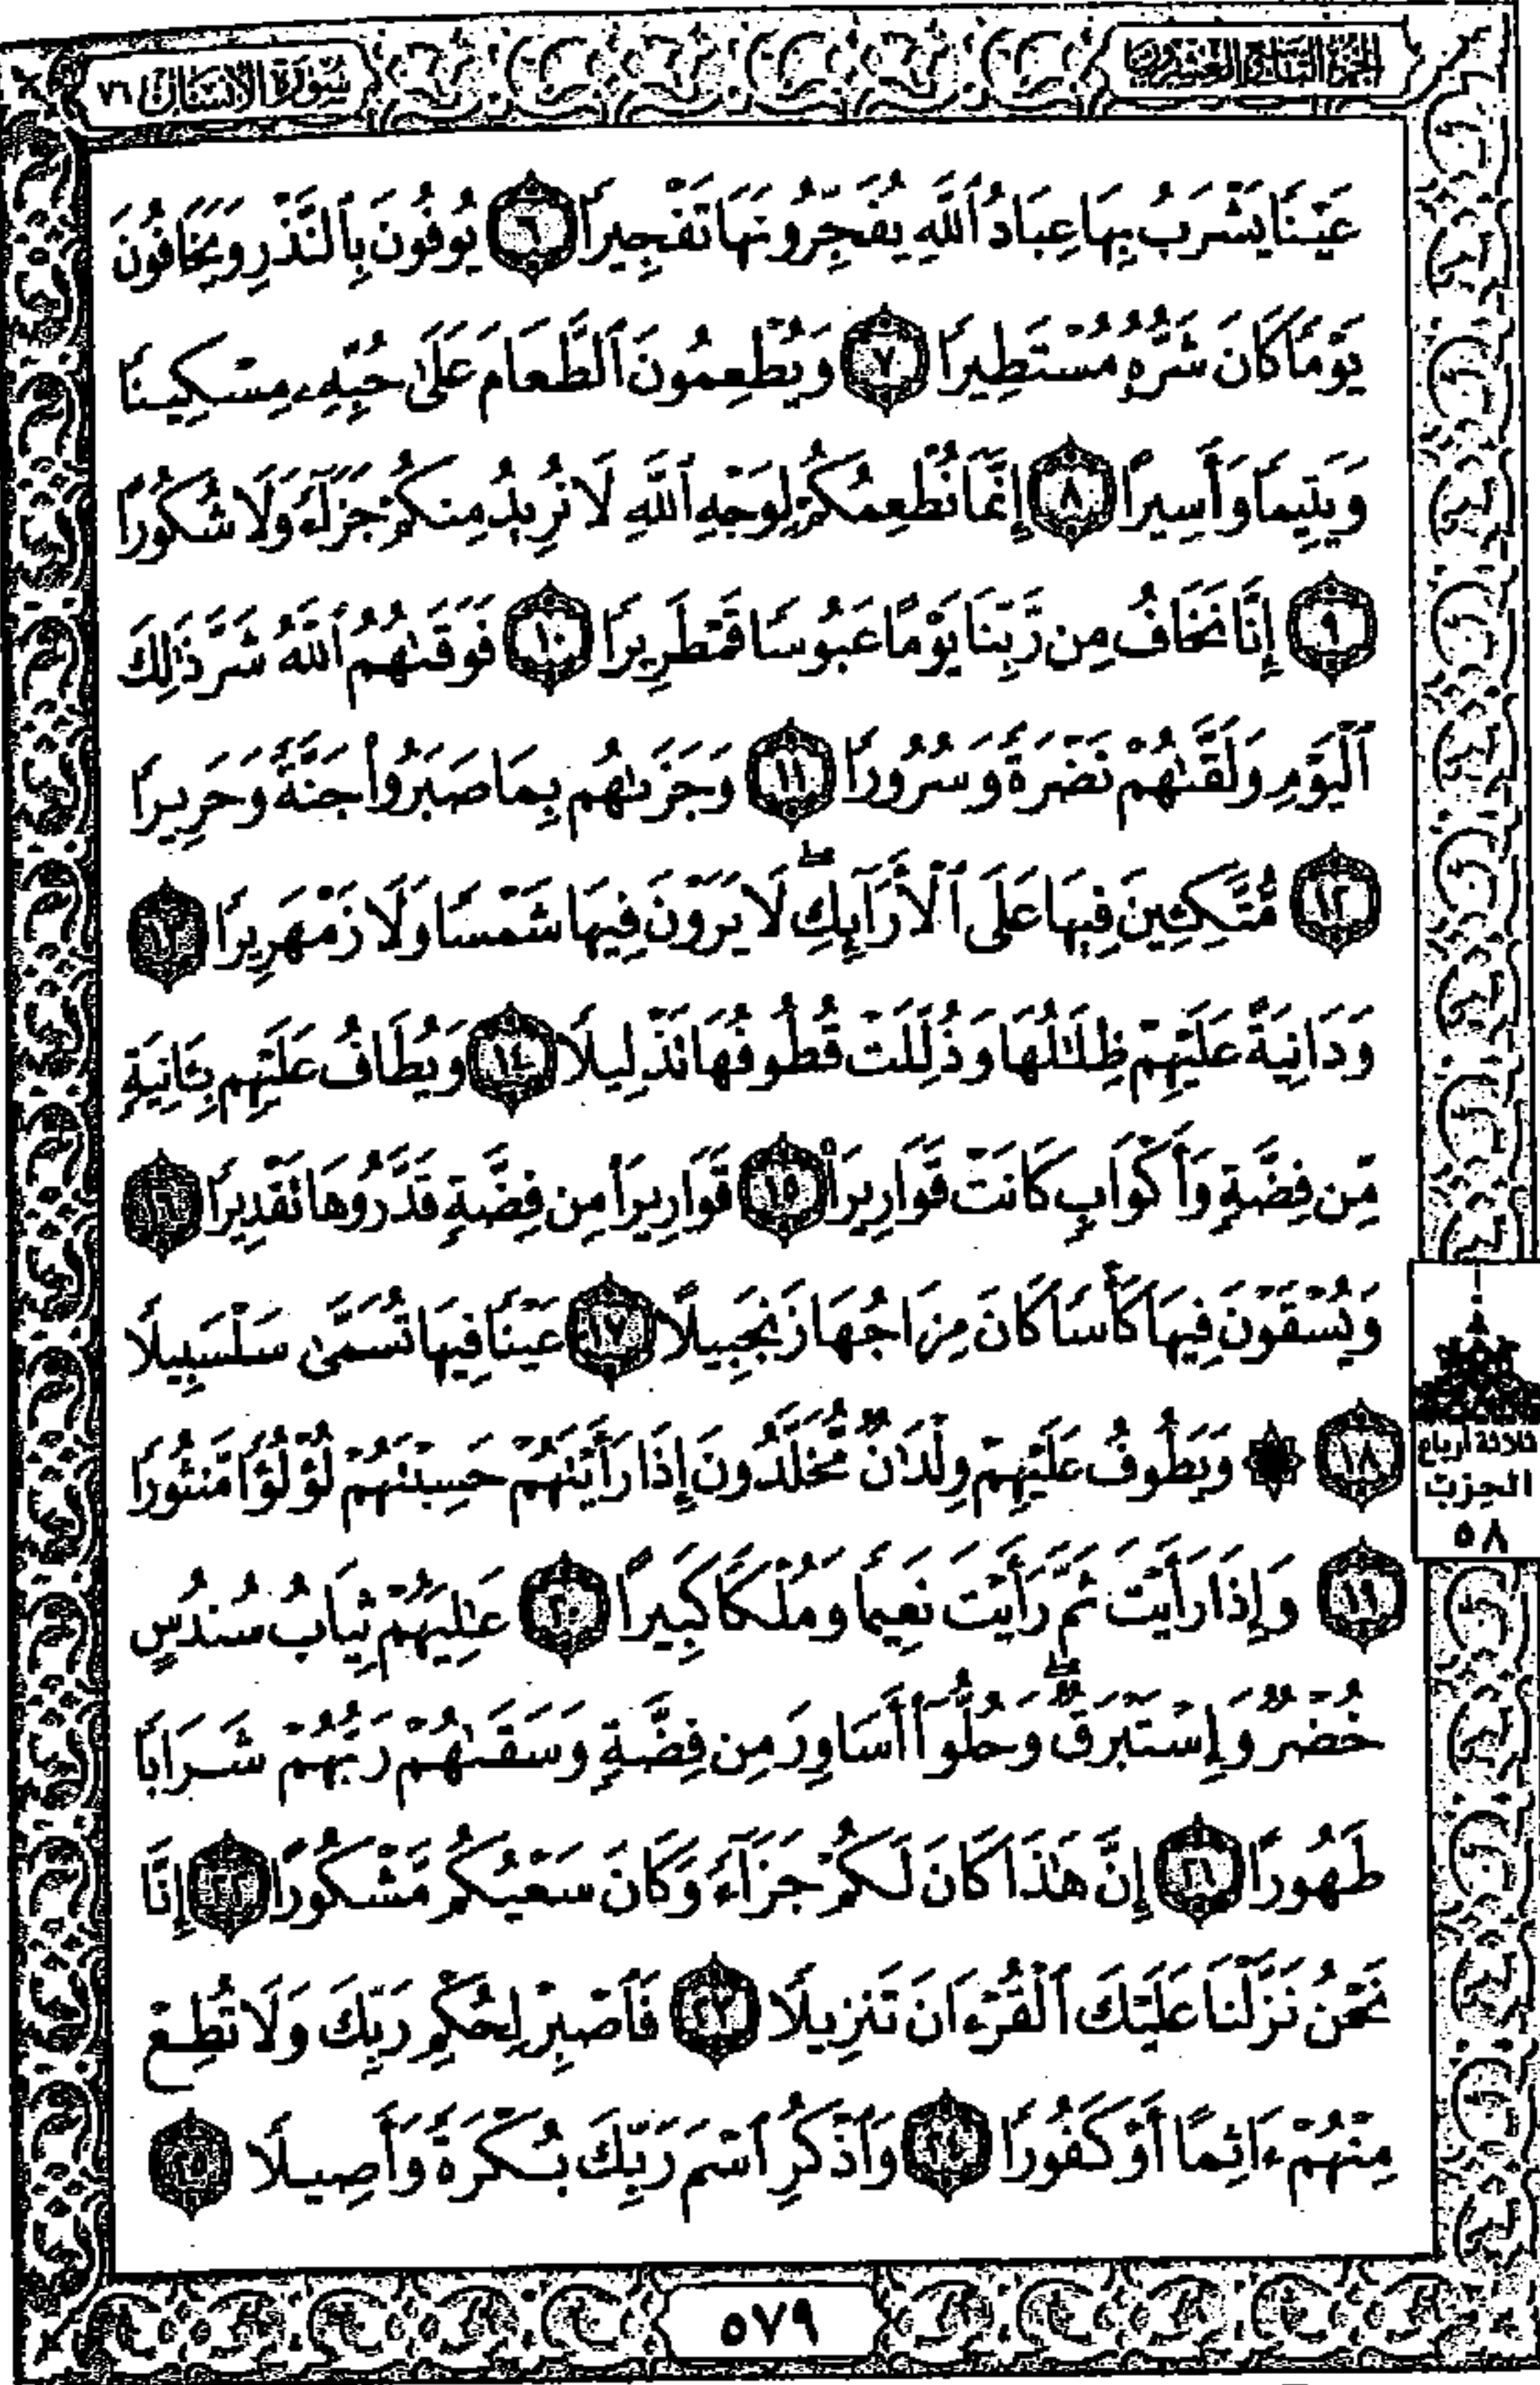 الجزء التاسع والعشرون
سورة الإنسان ٧٦
عَيْنًا يَشْرَبُ بِهَا عِبَادُ ٱللَّهِ يُفَجِّرُونَهَا تَفْجِيرًا ٦ يُوفُونَ بِٱلنَّذْرِ وَيَخَافُونَ
يَوْمًا كَانَ شَرُّهُۥ مُسْتَطِيرًا ٧ وَيُطْعِمُونَ ٱلطَّعَامَ عَلَىٰ حُبِّهِۦ مِسْكِينًا
وَيَتِيمًا وَأَسِيرًا ٨ إِنَّمَا نُطْعِمُكُمْ لِوَجْهِ ٱللَّهِ لَا نُرِيدُ مِنكُمْ جَزَآءً وَلَا شُكُورًا
٩ إِنَّا نَخَافُ مِن رَّبِّنَا يَوْمًا عَبُوسًا قَمْطَرِيرًا ١٠ فَوَقَىٰهُمُ ٱللَّهُ شَرَّ ذَٰلِكَ
ٱلْيَوْمِ وَلَقَّىٰهُمْ نَضْرَةً وَسُرُورًا ١١ وَجَزَىٰهُم بِمَا صَبَرُوا۟ جَنَّةً وَحَرِيرًا
١٢ مُّتَّكِـِٔينَ فِيهَا عَلَى ٱلْأَرَآئِكِ ۖ لَا يَرَوْنَ فِيهَا شَمْسًا وَلَا زَمْهَرِيرًا ١٣
وَدَانِيَةً عَلَيْهِمْ ظِلَـٰلُهَا وَذُلِّلَتْ قُطُوفُهَا تَذْلِيلًا ١٤ وَيُطَافُ عَلَيْهِم بِـَٔانِيَةٍ
مِّن فِضَّةٍ وَأَكْوَابٍ كَانَتْ قَوَارِيرَا۠ ١٥ قَوَارِيرَا۟ مِن فِضَّةٍ قَدَّرُوهَا تَقْدِيرًا ١٦
وَيُسْقَوْنَ فِيهَا كَأْسًا كَانَ مِزَاجُهَا زَنجَبِيلًا ١٧ عَيْنًا فِيهَا تُسَمَّىٰ سَلْسَبِيلًا
١٨ ۞ وَيَطُوفُ عَلَيْهِمْ وِلْدَٰنٌ مُّخَلَّدُونَ إِذَا رَأَيْتَهُمْ حَسِبْتَهُمْ لُؤْلُؤًا مَّنثُورًا
١٩ وَإِذَا رَأَيْتَ ثَمَّ رَأَيْتَ نَعِيمًا وَمُلْكًا كَبِيرًا ٢٠ عَـٰلِيَهُمْ ثِيَابُ سُندُسٍ
خُضْرٌ وَإِسْتَبْرَقٌ ۖ وَحُلُّوٓا۟ أَسَاوِرَ مِن فِضَّةٍ وَسَقَىٰهُمْ رَبُّهُمْ شَرَابًا
طَهُورًا ٢١ إِنَّ هَـٰذَا كَانَ لَكُمْ جَزَآءً وَكَانَ سَعْيُكُم مَّشْكُورًا ٢٢ إِنَّا
نَحْنُ نَزَّلْنَا عَلَيْكَ ٱلْقُرْءَانَ تَنزِيلًا ٢٣ فَٱصْبِرْ لِحُكْمِ رَبِّكَ وَلَا تُطِعْ
مِنْهُمْ ءَاثِمًا أَوْ كَفُورًا ٢٤ وَٱذْكُرِ ٱسْمَ رَبِّكَ بُكْرَةً وَأَصِيلًا ٢٥
ثلاثة أرباع
الحزب
٥٨
٥٧٩